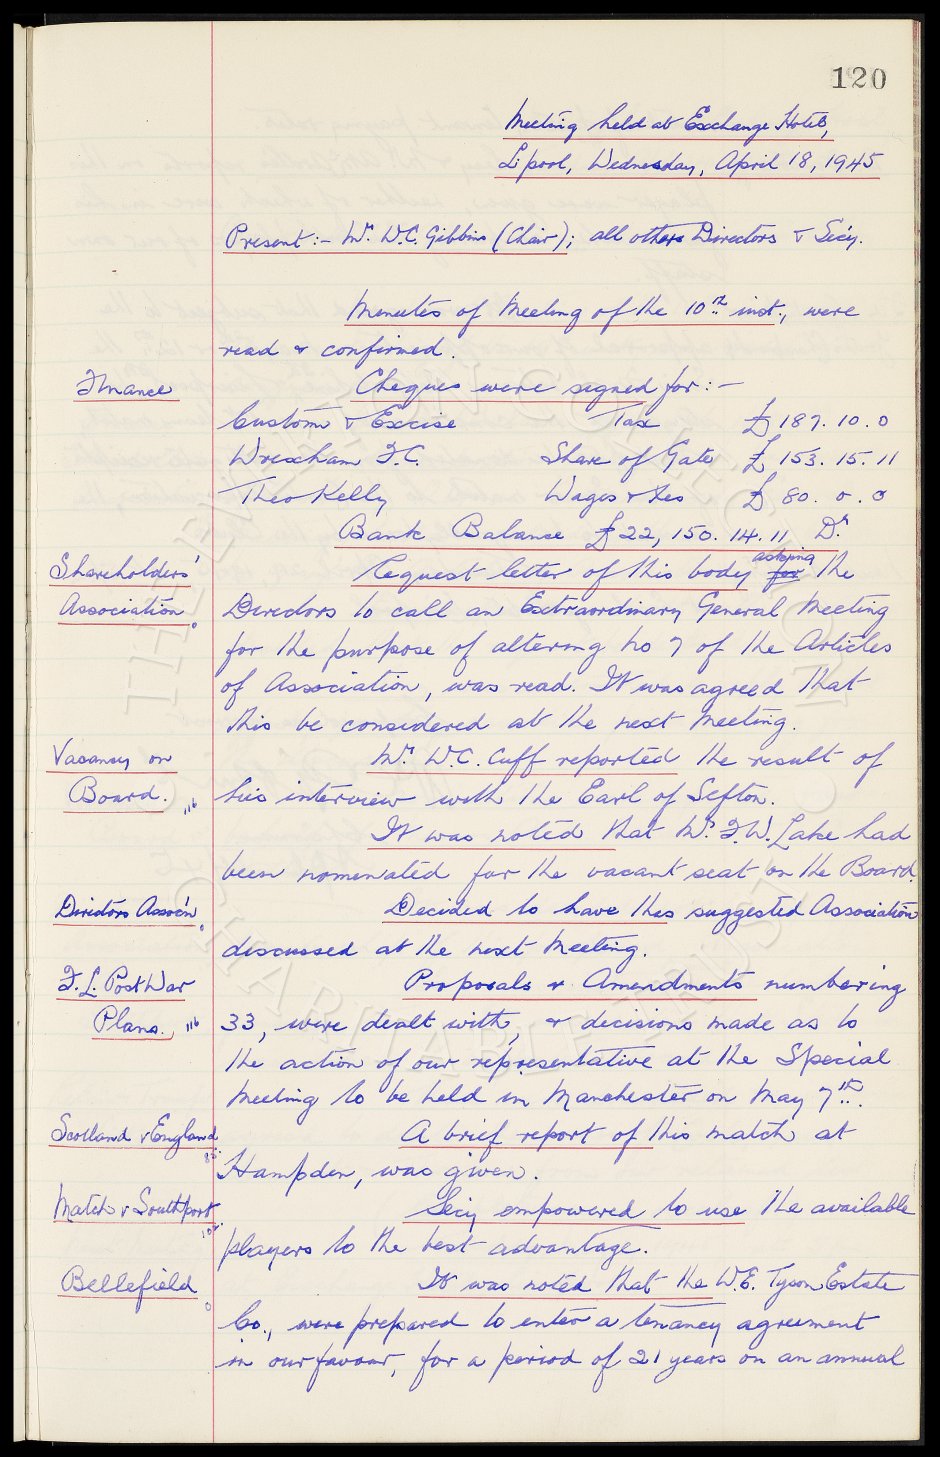 120
Meeting held at Exchange Hotel,
L'pool, Wednesday, April 18, 1945
Present:- Mr. W.C. Gibbins (Chair); all other Directors & Sec'y.
Minutes of Meeting of the 10th inst., were
read & confirmed.
Finance
Cheques were signed for:-
Customs & Excise Tax £ 187. 10. 0
Wrexham F.C. Share of Gate £ 153. 15. 11
Theo Kelly Wages & Xes £ 80. 0. 0
Bank Balance £22,150. 14. 11 Dr.
Shareholders'
Association
Request letter of this body for asking the
Directors to call an Extraordinary General Meeting
for the purpose of altering No 7 of the Articles
of Association, was read. It was agreed that
this be considered at the next Meeting.
Vacancy on
Board. 116
Mr. W.C. Cuff reported the result of
his interview with the Earl of Sefton.
It was noted that Mr. F.W. Lake had
been nominated for the vacant seat on the Board.
Directors Assoc'n
Decided to have this suggested Association
discussed at the next Meeting.
F.L. Post War
Plans. 116
Proposals & Amendments numbering
33, were dealt with, & decisions made as to
the action of our representative at the Special
Meeting to be held in Manchester on May 7th.
Scotland v England
A brief report of this match at
Hampden, was given.
Match v Southport
Secy empowered to use the available
players to the best advantage.
Bellefield
It was noted that the W.E. Tyson Estate
Co., were prepared to enter a tenancy agreement
in our favour, for a period of 21 years on an annual
THE EVERTON COLLECTION
CHARITABLE TRUST